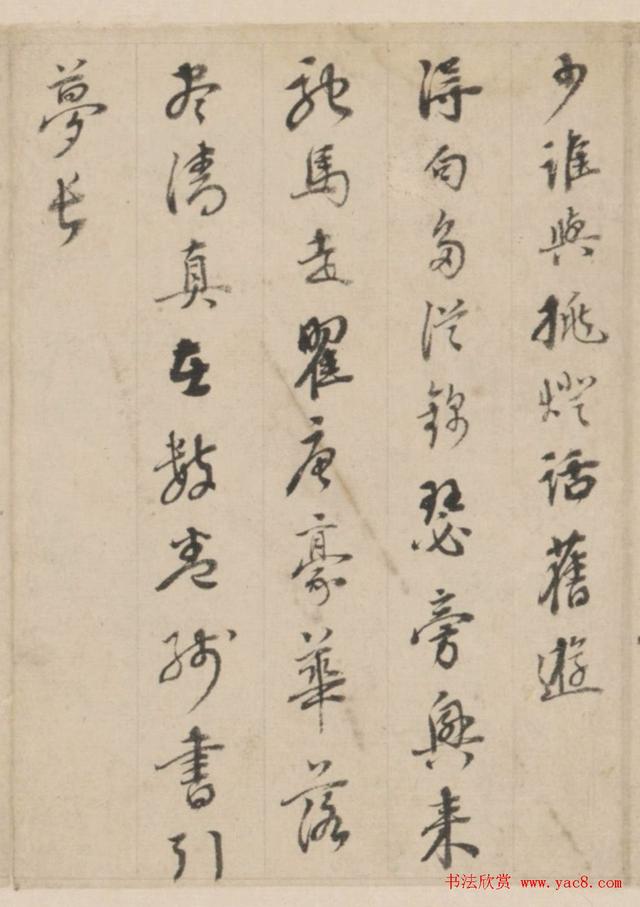 少誰與挑燈話舊遊
得句多從錦瑟旁興來
馬走瞿唐豪華落
尽清真在數卷殘書引
夢長
书法欣赏 www.yac8.com